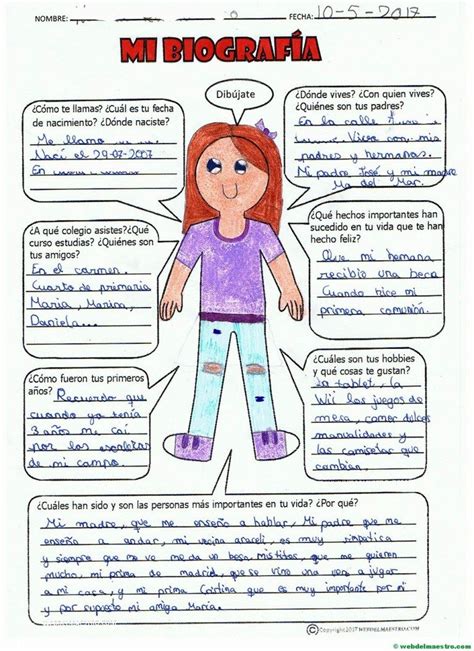 NOMBRE: o FECHA: 10-5-2017
MI BIOGRAFÍA
Dibújate
¿Cómo te llamas? ¿Cuál es tu fecha
de nacimiento? ¿Dónde naciste?
Me llamo
Nací el 29-07-2007
En
¿Dónde vives? ¿Con quien vives?
¿Quiénes son tus padres?
En la calle
Vivo con mis
padres y hermanas.
Mi padre José y mi madre
Ma del Mar.
¿A qué colegio asistes?¿Qué
curso estudias? ¿Quiénes son
tus amigos?
En el carmen.
Cuarto de primaria
Maria, Marina,
Daniela...
¿Qué hechos importantes han
sucedido en tu vida que te han
hecho feliz?
Que mi hemana
recibio una beca
Cuando hice mi
primera comunión.
¿Cómo fueron tus primeros
años?
Recuerdo que
cuando ya tenía
3 años me caí
por las escaleras
de mi campo.
¿Cuáles son tus hobbies
y qué cosas te gustan?
La tablet, la
Wii los juegos de
mesa, comer dulces
manualidades y
las camisetas que
cambian.
¿Cuáles han sido y son las personas más importantes en tu vida? ¿Por qué?
Mi madre, que me enseño a hablar, Mi padre que me
enseño a andar, mi vecina araceli, es muy simpatica
y siempre que me ve me da un beso, mis titos, que me quieren
mucho, mi prima de madrid, que se vino una vez a jugar
a mi casa, y mi prima Cristina que es muy importante por mi
y por supuesto mi amiga Maria.
© Copyright 2017 WEBDELMAESTRO.COM
© webdelmaestro.com